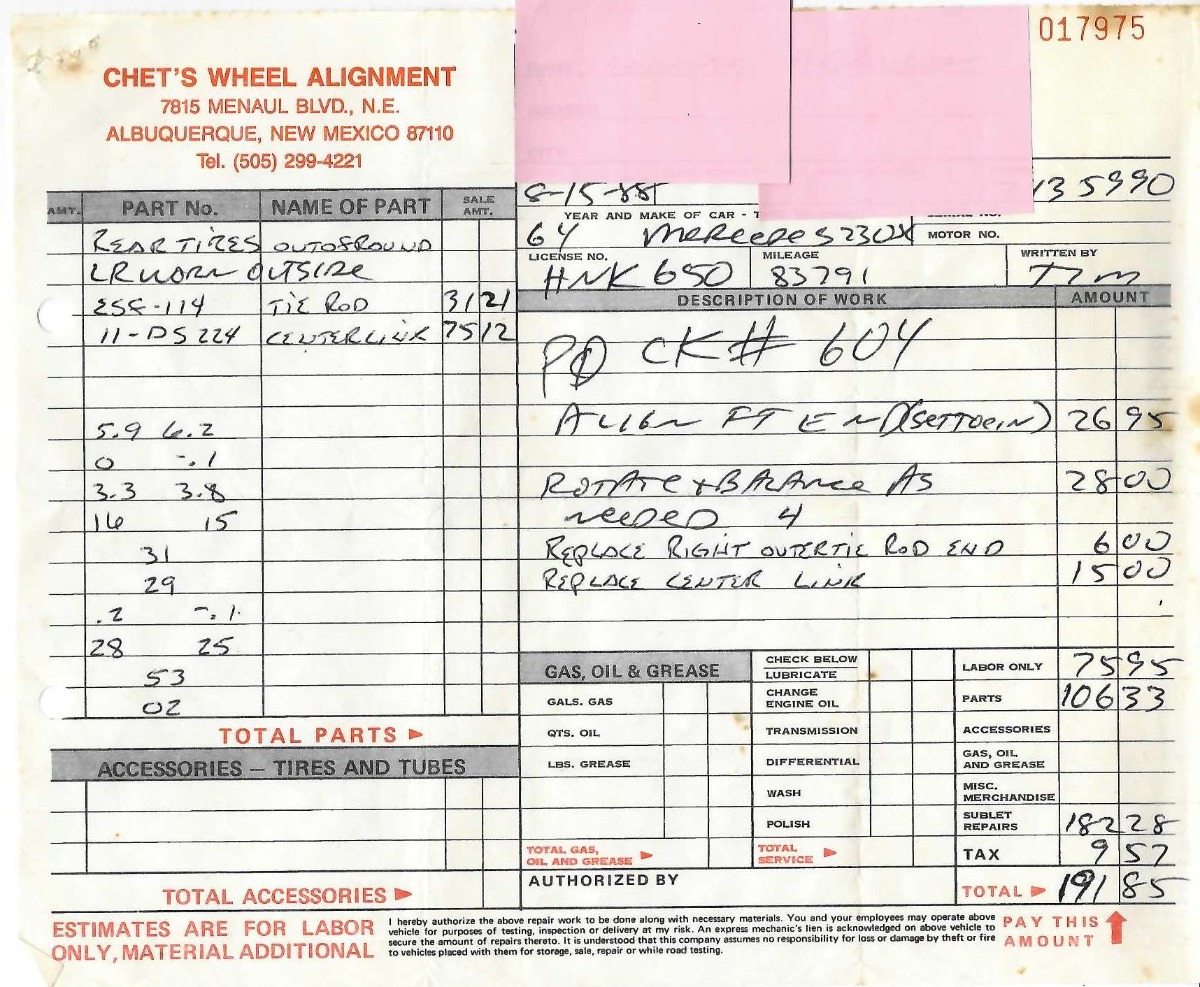 017975
CHET'S WHEEL ALIGNMENT
7815 MENAUL BLVD., N.E.
ALBUQUERQUE, NEW MEXICO 87110
Tel. (505) 299-4221
8-15-88
135990
YEAR AND MAKE OF CAR -
64 Mercedes 230SX
MOTOR NO.
LICENSE NO. HNK 650
MILEAGE 83791
WRITTEN BY Tim
AMT. PART No. NAME OF PART SALE AMT.
REAR TIRES OUTOFROUND
LR WORN OUTSIDE
ESF-114 TIE ROD 31 21
11-DS 224 CENTERLINK 75 12
5.9 6.2
0 -.1
3.3 3.8
16 15
31
29
.2 -.1
28 25
53
02
TOTAL PARTS
ACCESSORIES – TIRES AND TUBES
TOTAL ACCESSORIES
DESCRIPTION OF WORK AMOUNT
PD CK# 604
ALIGN FT END (SET TOE IN) 26 95
ROTATE + BALANCE AS 28 00
NEEDED 4
REPLACE RIGHT OUTERTIE ROD END 6 00
REPLACE CENTER LINK 15 00
GAS, OIL & GREASE
GALS. GAS
QTS. OIL
LBS. GREASE
TOTAL GAS,
OIL AND GREASE
CHECK BELOW
LUBRICATE
CHANGE
ENGINE OIL
TRANSMISSION
DIFFERENTIAL
WASH
POLISH
TOTAL
SERVICE
LABOR ONLY 75 95
PARTS 106 33
ACCESSORIES
GAS, OIL
AND GREASE
MISC.
MERCHANDISE
SUBLET
REPAIRS 182 28
TAX 9 57
TOTAL 191 85
AUTHORIZED BY
ESTIMATES ARE FOR LABOR
ONLY, MATERIAL ADDITIONAL
I hereby authorize the above repair work to be done along with necessary materials. You and your employees may operate above
vehicle for purposes of testing, inspection or delivery at my risk. An express mechanic's lien is acknowledged on above vehicle to
secure the amount of repairs thereto. It is understood that this company assumes no responsibility for loss or damage by theft or fire
to vehicles placed with them for storage, sale, repair or while road testing.
PAY THIS
AMOUNT